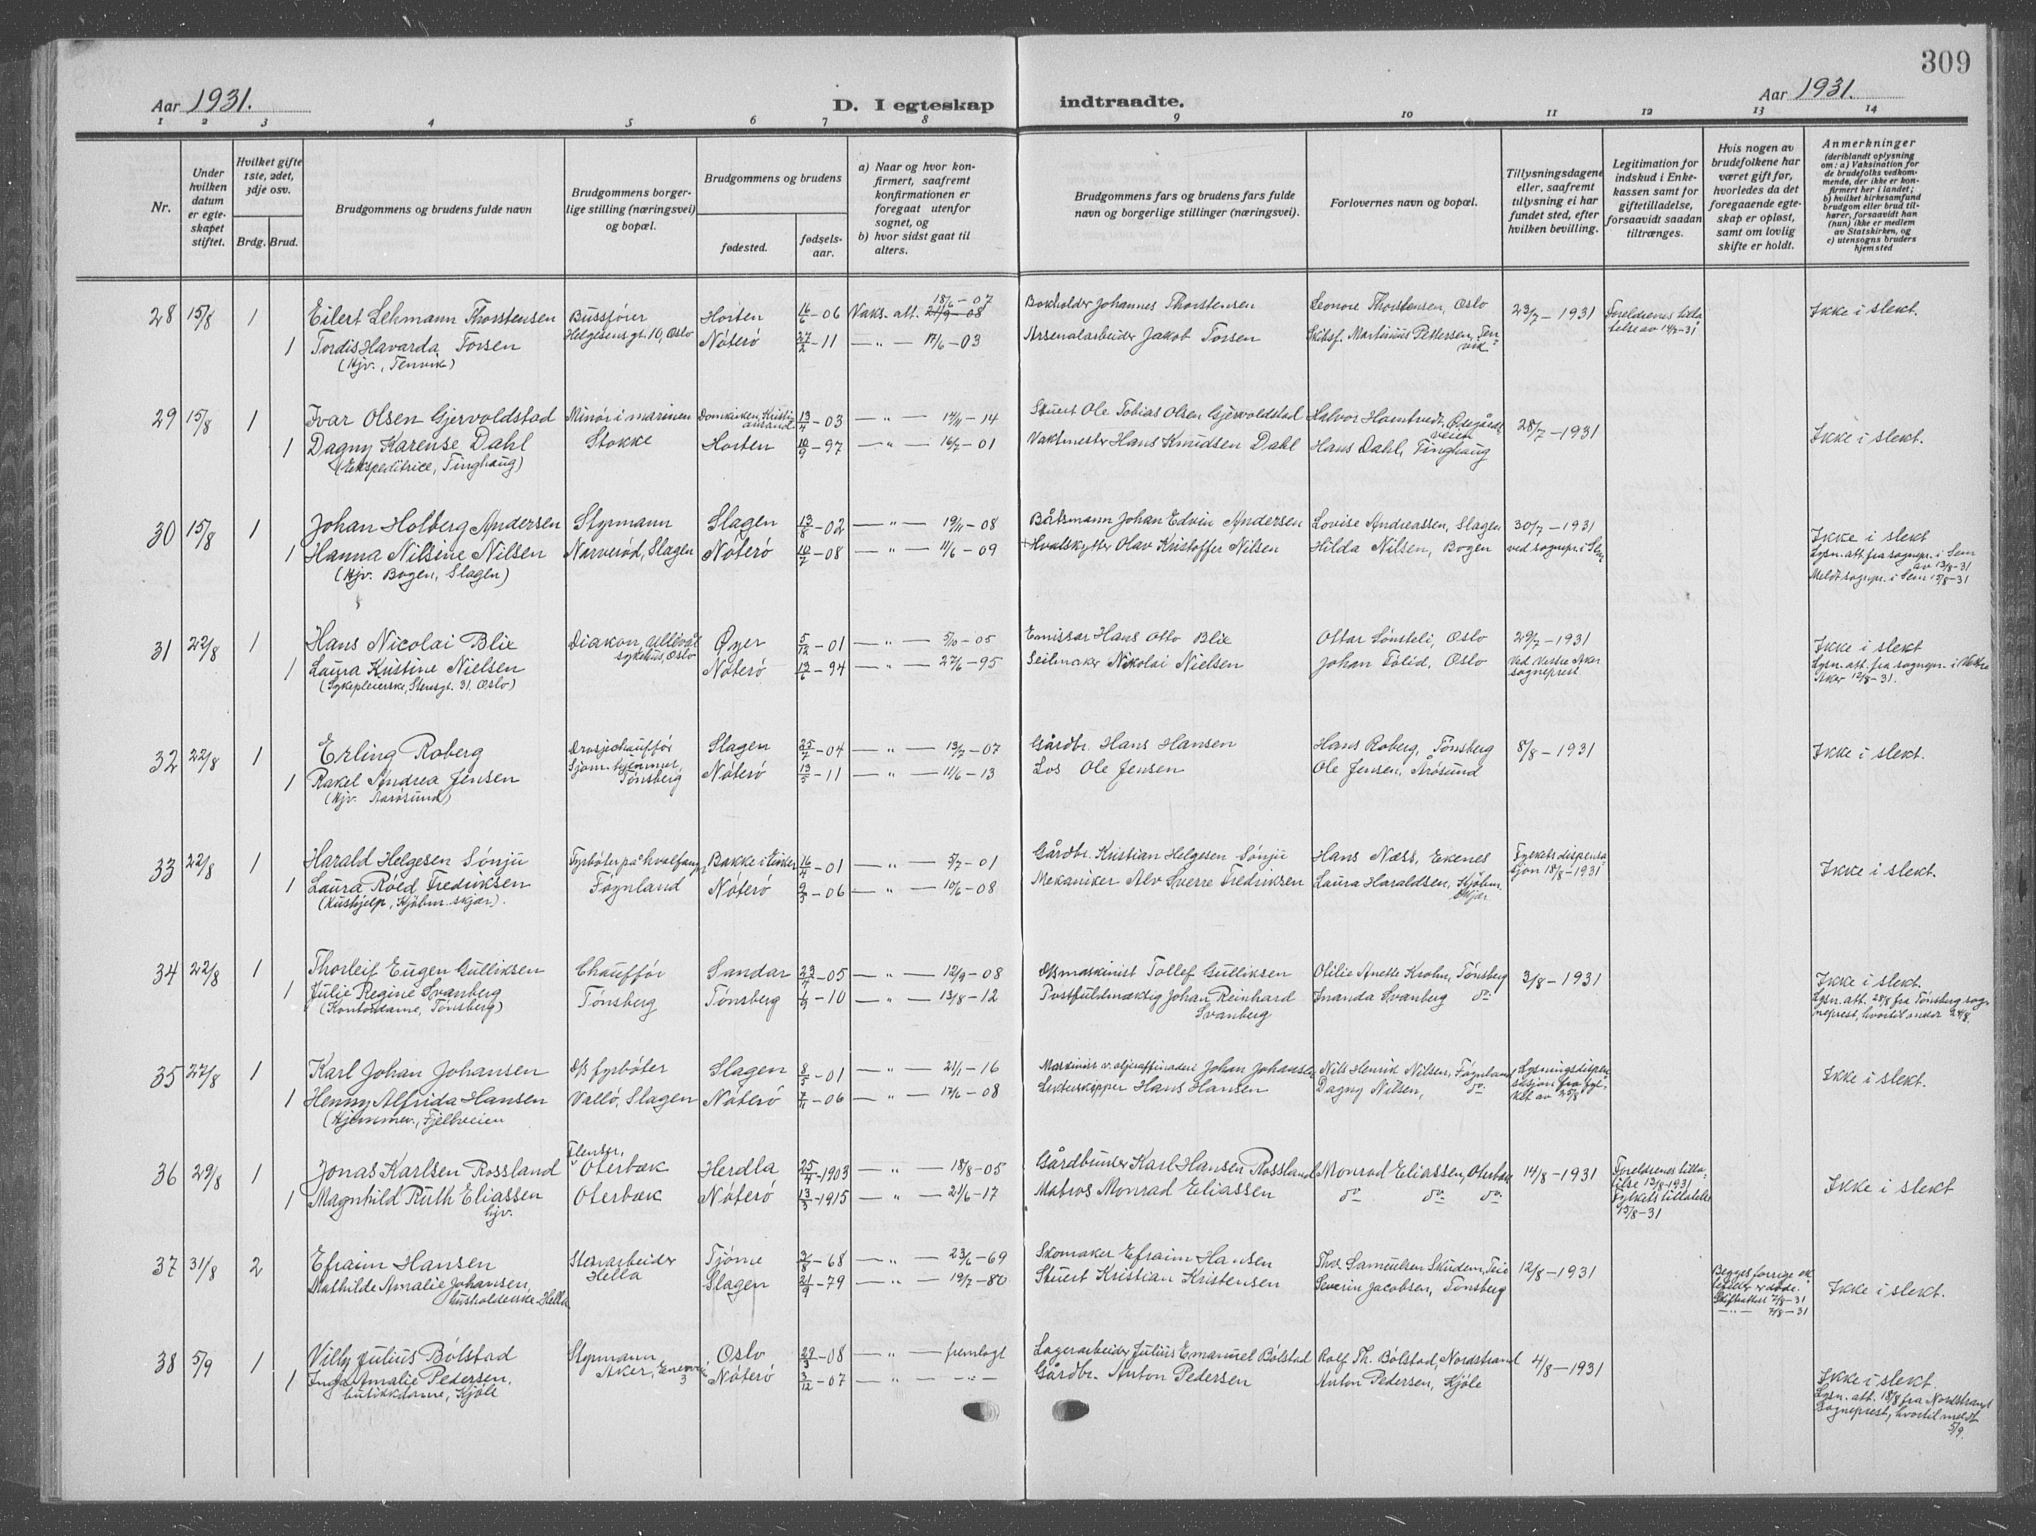 309
Aar 1931. D. I egteskap indtraadte. Aar 1931.
1 2 3 4 5 6 7 8 9 10 11 12 13 14
Nr.
Under hvilken datum er egteskapet stiftet.
Hvilket gifte 1ste, 2det, 3dje osv.
Brdg. Brud.
Brudgommens og brudens fulde navn
Brudgommens borgerlige stilling (næringsvei) og bopæl.
Brudgommens og brudens
fødested.
fødselsaar.
a) Naar og hvor konfirmert, saafremt konfirmationen er foregaat utenfor sognet, og
b) hvor sidst gaat til alters.
Brudgommens fars og brudens fars fulde navn og borgerlige stillinger (næringsvei).
Forlovernes navn og bopæl.
Tillysningsdagene eller, saafremt tillysning ei har fundet sted, efter hvilken bevilling.
Legitimation for indskud i Enkekassen samt for giftetilladelse, forsaavidt saadan tiltrænges.
Hvis nogen av brudefolkene har været gift før, hvorledes da det foregaaende egteskap er opløst, samt om lovlig skifte er holdt.
Anmerkninger
(deriblandt oplysning om: a) Vaksination for de brudefolks vedkommende, der ikke er konfirmert her i landet; b) hvilket kirkesamfund brudgom eller brud tilhører, forsaavidt han (hun) ikke er medlem av Statskirken, og c) utensogns bruders hjemsted
28 15/8 1 Eilert Lehmann Thorstensen Bussfører Horten 16/6-06 Vaks. att. 18/6-07 Bokholder Johannes Thorstensen Leonore Thorstensen, Oslo 23/7-1931 Foreldrenes tilla- Ikke i slekt.
1 Tordis Havarda Torsen Helgesens gt. 10, Oslo Nøterø 27/2-11 —"— 17/6-03 Arsenalarbeider Jakob Torsen Skibsf. Martinius Pettersen, Ten-vik telse av 14/7-31
(Hjv., Tenvik)
29 15/8 1 Ivar Olsen Gjervoldstad Minør i marinen Domkirken, Kristiansand 13/4-03 —"— 14/11-14 Stuert Ole Tobias Olsen Gjervoldstad Halvor Hamtvedt, Ødegårdsveien 28/7-1931
1 Dagny Karense Dahl Stokke Horten 10/9-97 —"— 16/7-01 Vaktmester Hans Knudsen Dahl Hans Dahl, Tinghaug Ikke i slekt.
(Ekspeditrice, Tinghaug)
30 15/8 1 Johan Holberg Andersen Styrmann Slagen 13/8-02 —"— 19/11-08 Båtsmann Johan Edvin Andersen Lovise Andreassen, Slagen 30/7-1931 Ikke i slekt
1 Hanna Nilsine Nilsen Narverød, Slagen Nøterø 10/7-08 —"— 11/6-09 Hvalskytter Olav Kristoffer Nilsen Hilda Nilsen, Bogen ved sognepr. i Sem Lysn. att. fra sognepr. i Sem av 13/8-31
(Hjv. Bogen, Slagen) Meldt sognepr. i Sem 15/8-31
31 22/8 1 Hans Nicolai Blix Diakon, Ullevål sykehus, Oslo Øyer 5/12-01 —"— 5/10-05 Emissær Hans Otto Blix Ottar Lønsteli, Oslo 29/7-1931 Ikke i slekt
1 Laura Kristine Nielsen Nøterø 13/6-94 —"— 27/6-95 Seilmaker Nikolai Nielsen Johan Tolid, Oslo Ved Vestre Aker sogneprest Lysn. att. fra sognepr. i Vestre Aker 12/8-31.
(Sykepleierske, Stensgt. 31. Oslo)
32 22/8 1 Erling Roberg Drosjechauffør Slagen 25/7-04 —"— 13/7-07 Gårdbr. Hans Hansen Hans Roberg, Tønsberg 8/8-1931 Ikke i slekt.
1 Rakel Andrea Jensen Sjøm. hjemmet, Tønsberg Nøterø 13/5-11 —"— 11/6-13 Los Ole Jensen Ole Jensen, Årøsund
(Hjv. Aarøsund)
33 22/8 1 Harald Helgesen Sønju Fyrbøter på hvalfang Bakke i Eiker 16/4-01 —"— 5/7-01 Gårdbr. Kristian Helgesen Sønju Hans Næss, Ekenes Fylkets dispensasjon 18/8-1931 Ikke i slekt.
1 Laura Røed Fredriksen Føynland Nøterø 9/3-06 —"— 10/6-08 Mekaniker Alv Sverre Fredriksen Laura Haraldsen, Kjøbm.skjær
(Hushjelp, Kjøbm. skjær).
34 22/8 1 Thorleif Eugen Gulliksen Chauffør Sandar 23/4-05 —"— 12/9-08 D/S maskinist Tollef Gulliksen Otilie Anette Krohn, Tønsberg 3/8-1931 Ikke i slekt.
1 Julie Regine Svanberg Tønsberg Tønsberg 1/3-10 —"— 13/8-12 Postfuldmæktig Johan Reinhard Svanberg Inanda Svanberg do. Lysn. att. 28/8 fra Tønsberg sogneprest, hvortil under 24/8.
(Kontordame, Tønsberg)
35 27/8 1 Karl Johan Johansen D/S fyrbøter Slagen 8/5-01 —"— 21/1-16 Maskinist v. oljeraffineri Johan Johansen Nils Henrik Nilsen, Føynland Lysningsdispensasjon fra fylket av 25/8 Ikke i slekt.
1 Henny Alfrida Hansen Vallø, Slagen Nøterø 7/11-06 —"— 17/6-08 Lekterskipper Hans Hansen Dagny Nilsen, do.
(Hjemmev., Fjellveien
36 29/8 1 Jonas Karlsen Rossland Flenser, Oterbæk Herdla 25/4-1903 —"— 18/8-05 Gårdbruker Karl Hansen Rossland Monrad Eliassen, Oterbæk 14/8-1931 Foreldrenes tillatelse 13/8-1931
1 Magnhild Ruth Eliassen Oterbæk Nøterø 13/3-1915 —"— 21/6-17 Matros Monrad Eliassen do. do. do. Fylkets tillatelse 15/8-31 Ikke i slekt
hjv.
37 31/8 2 Efraim Hansen Stenarbeider Tjøme 3/8-68 —"— 23/6-69 Skomaker Efraim Hansen Thor Samuelsen Skudem, Teie 12/8-1931 Begges forrige ektefeller er døde. Ikke i slekt.
Mathilde Amalie Johansen, Hella Slagen 21/9-79 —"— 19/7-80 Stuert Kristian Kristensen Severin Jacobsen, Tønsberg Skifteattest 7/8-31
husholderske Hella —"— 7/8-31
38 5/9 1 Villy Julius Bølstad Styrmann Oslo 29/3-08 —"— fremlagt Lagerarbeider Julius Emanuel Bølstad Rolf Th. Bølstad, Nordstrand 4/8-1931 Ikke i slekt.
1 Inga Amalie Pedersen, Aker, Nøterø 3/12-07 —"— —"— Gårdbr. Anton Pedersen Anton Pedersen, Kjøle Lysn. att. 18/8 fra Nordstrand Sogneprest, hvortil meldt 5/9.
butikkdame, Kjøle